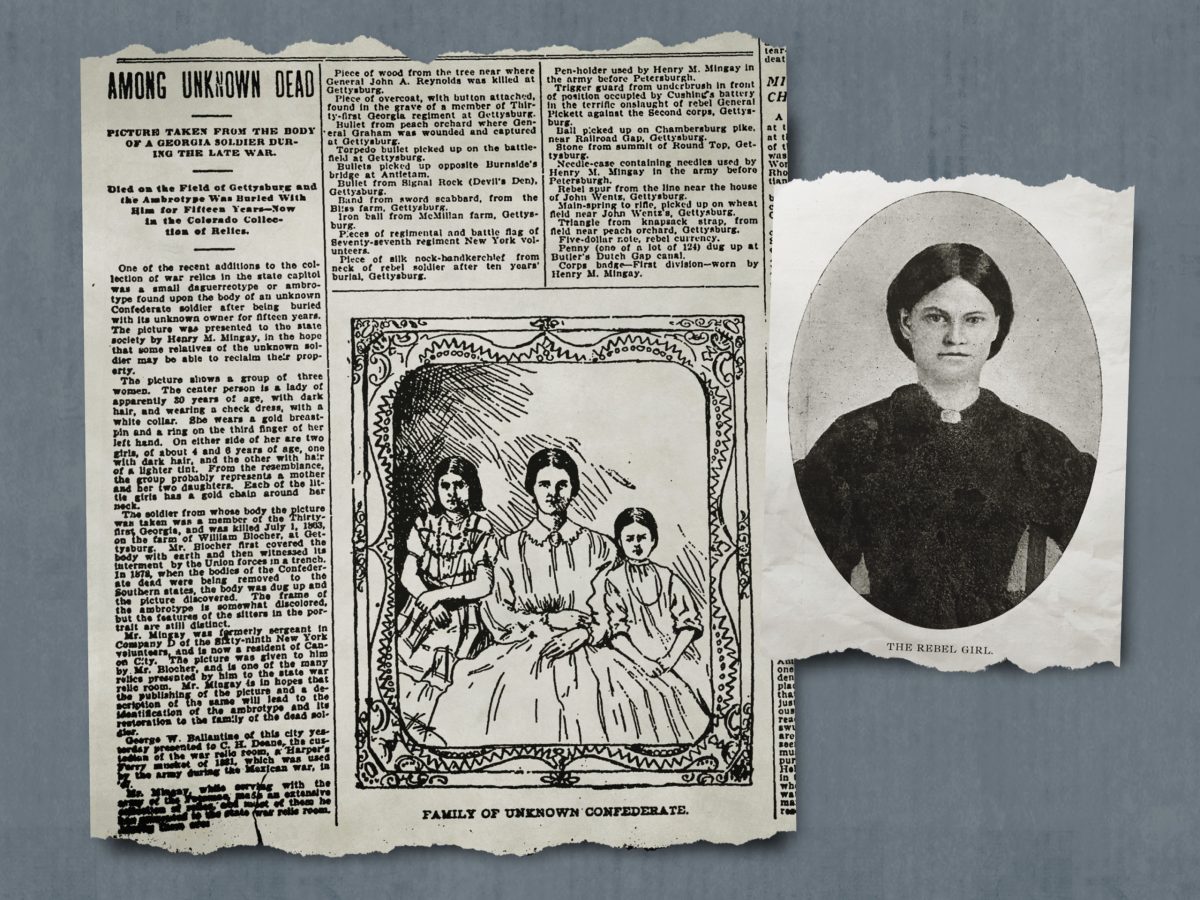 AMONG UNKNOWN DEAD
PICTURE TAKEN FROM THE BODY
OF A GEORGIA SOLDIER DUR-
ING THE LATE WAR.
Died on the Field of Gettysburg and
the Ambrotype Was Buried With
Him for Fifteen Years—Now
in the Colorado Collec-
tion of Relics.
One of the recent additions to the col-
lection of war relics in the state capitol
was a small daguerreotype or ambro-
type found upon the body of an unknown
Confederate soldier after being buried
with its unknown owner for fifteen years.
The picture was presented to the state
society by Henry M. Mingay, in the hope
that some relatives of the unknown sol-
dier may be able to reclaim their prop-
erty.
The picture shows a group of three
women. The center person is a lady of
apparently 30 years of age, with dark
hair, and wearing a check dress, with a
white collar. She wears a gold breast-
pin and a ring on the third finger of her
left hand. On either side of her are two
girls, of about 4 and 6 years of age, one
with dark hair, and the other with hair
of a lighter tint. From the resemblance,
the group probably represents a mother
and her two daughters. Each of the lit-
tle girls has a gold chain around her
neck.
The soldier from whose body the picture
was taken was a member of the Thirty-
first Georgia, and was killed July 1, 1863,
on the farm of William Blocher, at Get-
tysburg. Mr. Blocher first covered the
body with earth and then witnessed its
interment by the Union forces in a trench.
In 1878, when the bodies of the Confeder-
ate dead were being removed to the
Southern states, the body was dug up and
the picture discovered. The frame of
the ambrotype is somewhat discolored,
but the features of the sitters in the por-
trait are still distinct.
Mr. Mingay was formerly sergeant in
Company D of the Sixty-ninth New York
volunteers, and is now a resident of Can-
on City. The picture was given to him
by Mr. Blocher, and is one of the many
relics presented by him to the state war
relic room. Mr. Mingay is in hopes that
the publishing of the picture and a de-
scription of the same will lead to the
identification of the ambrotype and its
restoration to the family of the dead sol-
dier.
George W. Ballantine of this city yes-
terday presented to C. H. Deane, the cus-
todian of the war relic room, a Harper's
Ferry musket of 1831, which was used
by the army during the Mexican war, in
Mr. Mingay, while serving with the
army of the Potomac, made an extensive
collection of relics, and most of them he
has presented to the state war relic room.
Among them are:
Piece of wood from the tree near where
General John A. Reynolds was killed at
Gettysburg.
Piece of overcoat, with button attached,
found in the grave of a member of Thir-
ty-first Georgia regiment at Gettysburg.
Bullet from peach orchard where Gen-
eral Graham was wounded and captured
at Gettysburg.
Torpedo bullet picked up on the battle-
field at Gettysburg.
Bullets picked up opposite Burnside's
bridge at Antietam.
Bullet from Signal Rock (Devil's Den),
Gettysburg.
Band from sword scabbard, from the
Bliss farm, Gettysburg.
Iron ball from McMillan farm, Gettys-
burg.
Pieces of regimental and battle flag of
Seventy-seventh regiment New York vol-
unteers.
Piece of silk neck-handkerchief from
neck of rebel soldier after ten years'
burial, Gettysburg.
Pen-holder used by Henry M. Mingay in
the army before Petersburgh.
Trigger guard from underbrush in front
of position occupied by Cushing's battery
in the terrific onslaught of rebel General
Pickett against the Second corps, Gettys-
burg.
Ball picked up on Chambersburg pike,
near Railroad Gap, Gettysburg.
Stone from summit of Round Top, Get-
tysburg.
Needle-case containing needles used by
Henry M. Mingay in the army before
Petersburgh.
Rebel spur from the line near the house
of John Wentz, Gettysburg.
Main-spring to rifle, picked up on wheat
field near John Wentz's, Gettysburg.
Triangle from knapsack strap, from
field near peach orchard, Gettysburg.
Five-dollar note, rebel currency.
Penny (one of a lot of 124) dug up at
Butler's Dutch Gap canal.
Corps badge—First division—worn by
Henry M. Mingay.
FAMILY OF UNKNOWN CONFEDERATE.
THE REBEL GIRL.